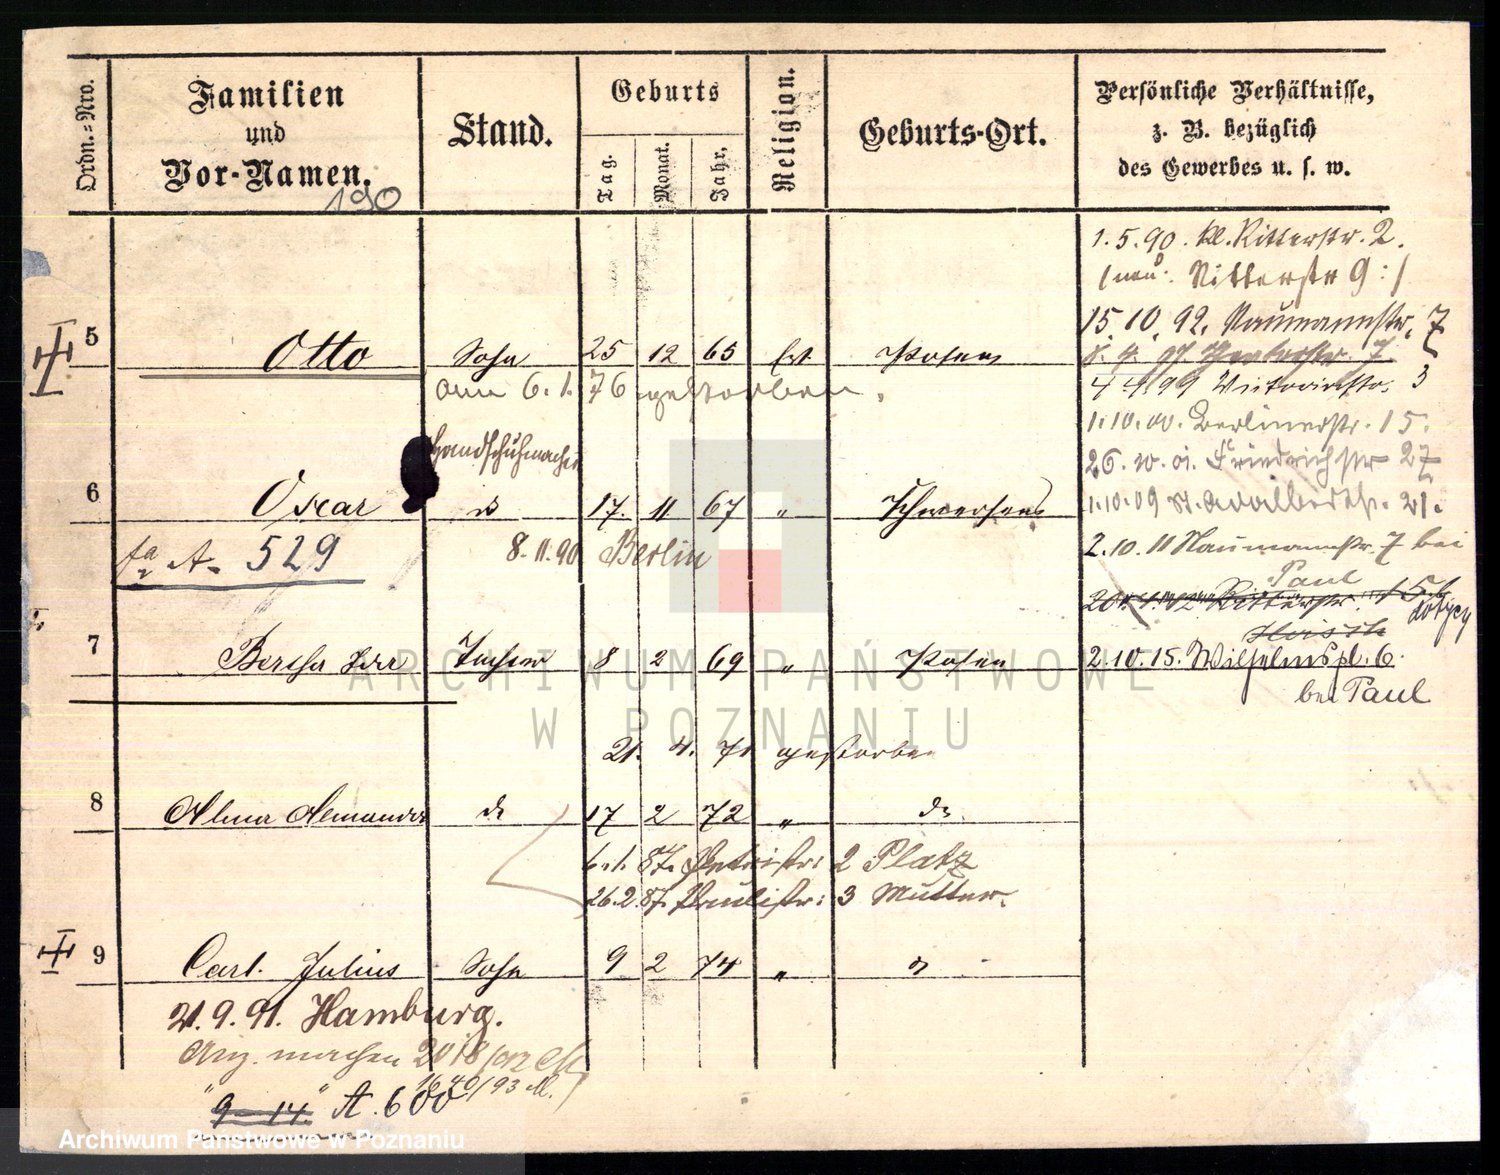 Ordn.=Nro.
Familien
und
Vor-Namen.
190
Stand.
Geburts
Tag.
Monat.
Jahr.
Religion.
Geburts-Ort.
Persönliche Verhältnisse,
z. B. bezüglich
des Gewerbes u. s. w.
1. 5. 90. kl. Ritterstr. 2.
(neu: Ritterstr 9 :)
15. 10. 92. Naumannstr. 7
5 Otto Sohn 25 12 65 Posen
7
am 6. 1. 76 gestorben.
4 4 99 Victoriastr. 3
1. 10. 00. Berlinerstr. 15.
Handschuhmacher
26. 10. 01. Friedrichstr 27
6 Oscar 17. 11 67 " Schwersenz
1. 10. 09 St. Adalbertstr. 21.
A. 529
8. 11. 90 Berlin
2. 10. 11 Naumannstr. 7 bei
Paul
Ritterstr. 15
7 Bertha Tochter 8 2 69 " Posen
2. 10. 15. Wilhelmspl. 6.
bei Paul
21. 4. 71 gestorben
8 Alma 17 2 72 "
6. 1. 87. Petristr: 2 Platz
26. 2. 87. Paulistr: 3 Mutter.
9 Carl Julius Sohn 9 2 74 "
21. 9. 91. Hamburg.
2018
1640/93
" 9-14 " A. 600
ARCHIWUM PAŃSTWOWE
W POZNANIU
Archiwum Państwowe w Poznaniu